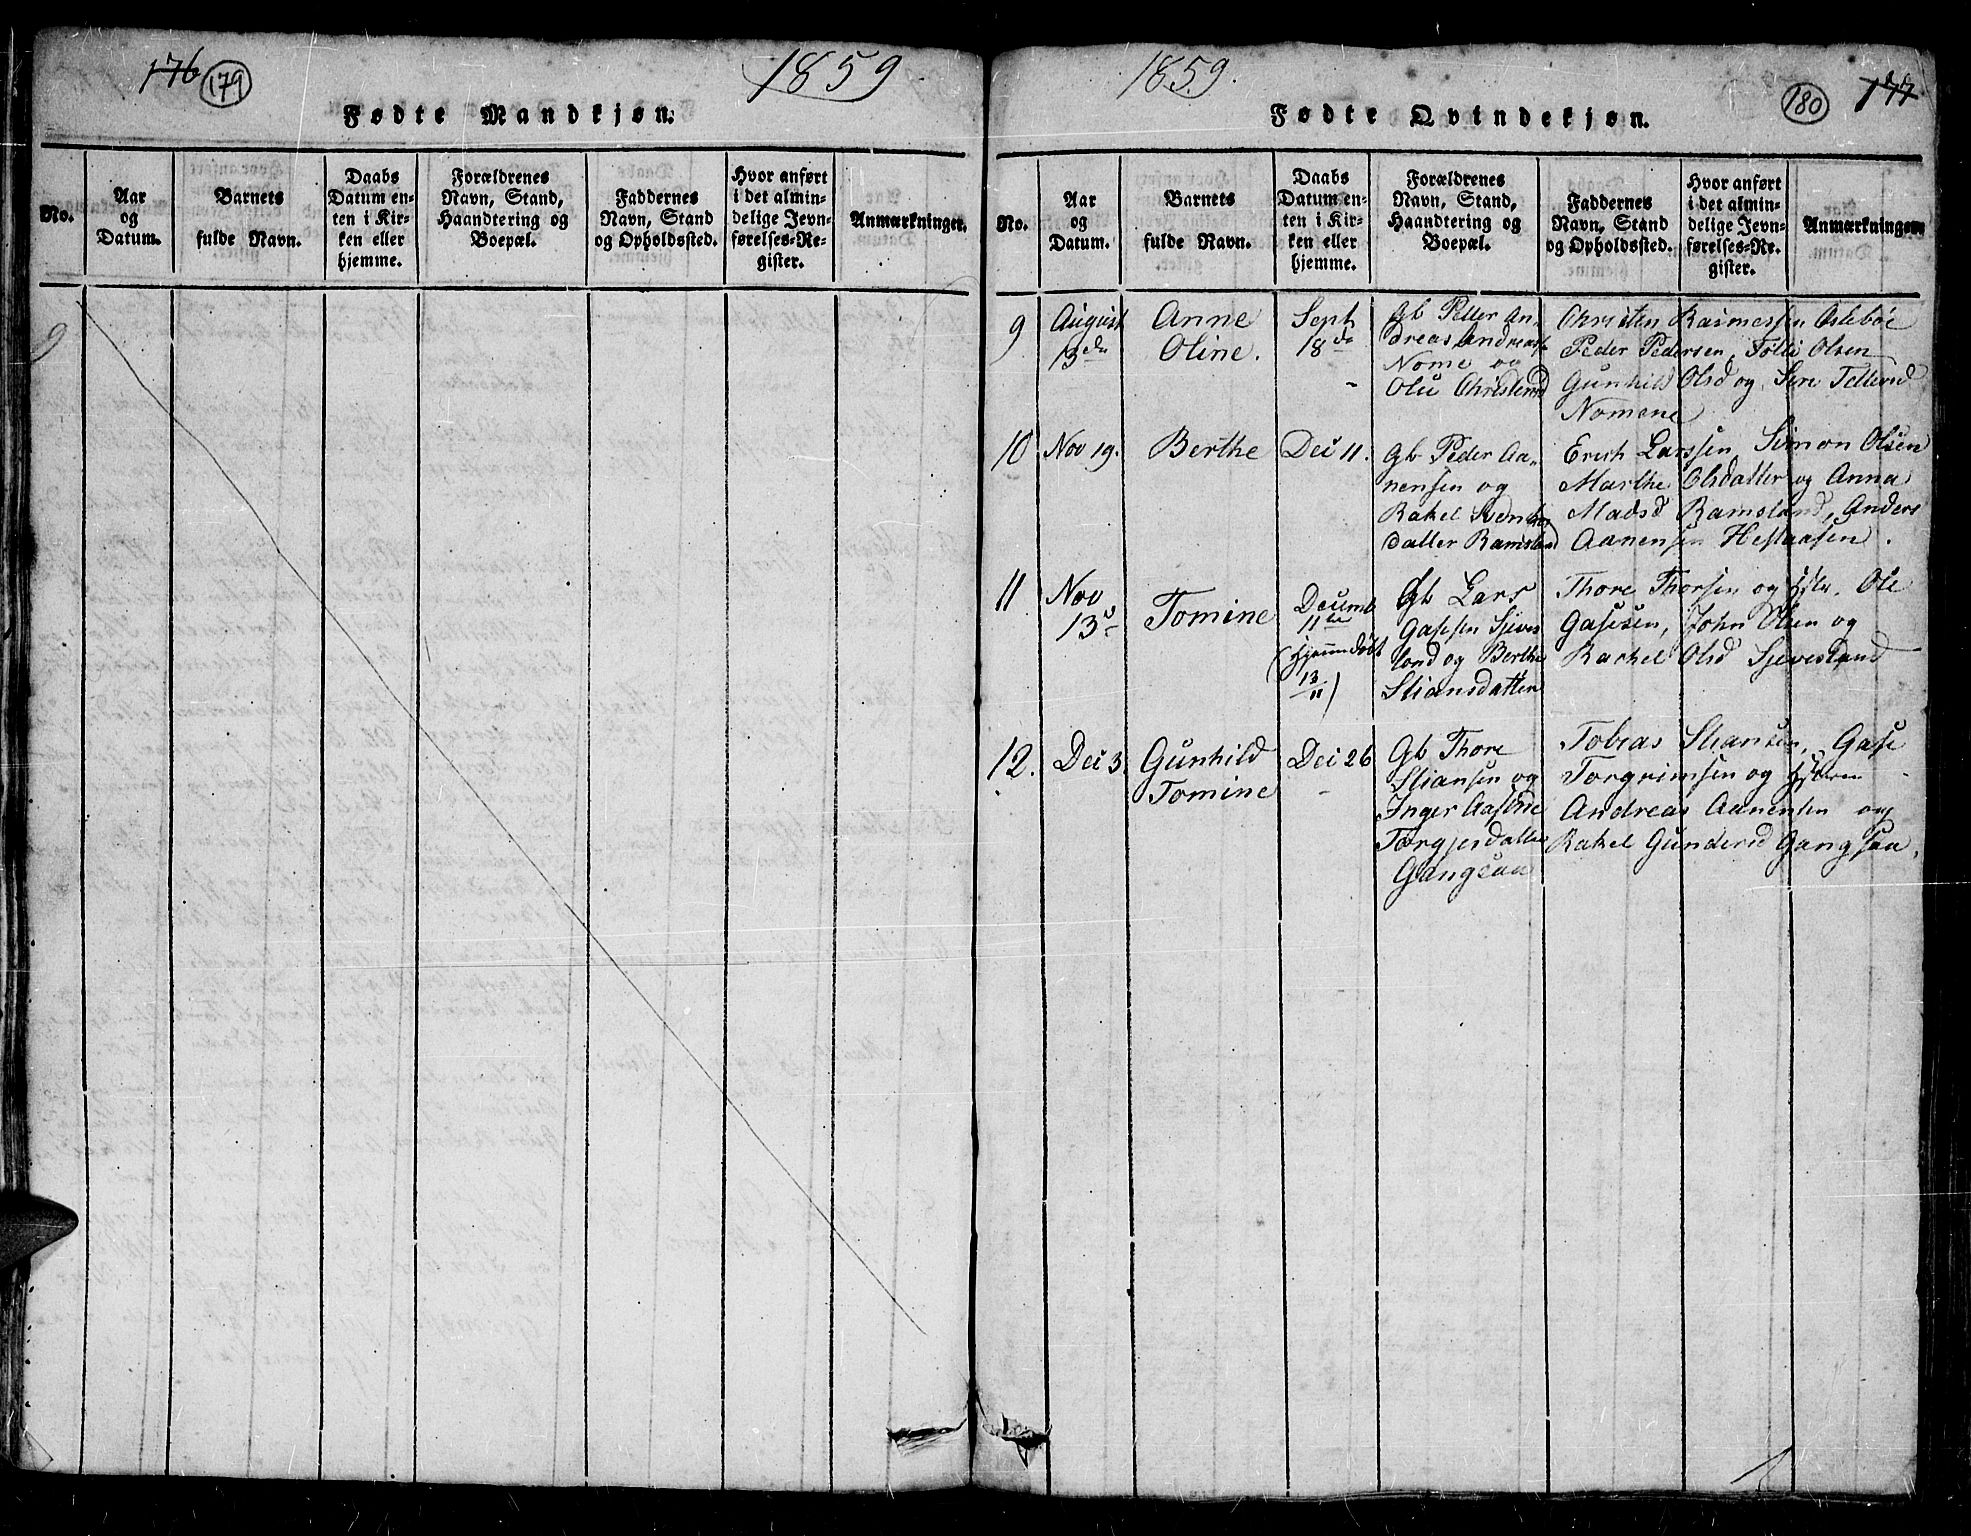 176 179 1859
Fødte Mandkjøn.
No.
Aar
og
Datum.
Barnets
fulde Navn.
Daabs
Datum en-
ten i Kir-
ken eller
hjemme.
Forældrenes
Navn, Stand,
Haandtering og
Boepæl.
Faddernes
Navn, Stand
og Opholdssted.
Hvor anført
i det almin-
delige Jevn-
førelses-Re-
gister.
Anmærkninger.
9
1859. 180 177
Fødte Qvindekjøn.
No.
Aar
og
Datum.
Barnets
fulde Navn.
Daabs
Datum en-
ten i Kir-
ken eller
hjemme.
Forældrenes
Navn, Stand,
Haandtering og
Boepæl.
Faddernes
Navn, Stand
og Opholdssted.
Hvor anført
i det almin-
delige Jevn-
førelses-Re-
gister.
Anmærkninger.
9
August
13de
Anne
Oline.
Sept
18de
Gb Petter An-
dreas Andreass
Nome og
Christen Rasmussen
Peder Pedersen, Olsen
Gunhild Olsd og
Nomene
10
Nov 19.
Berthe
Dec 11.
Gb Peder Aa-
nensen og
Rakel
datter Ramsland
Erich Larssen, Simon Olsen
Marthe Olsdatter og Anna
Madsd Ramsland, Anders
Aanensen Hestaasen.
11
Nov
13de
Tomine
Decemb
11te
(Hjemmedøbt
13
11)
Gb Lars
Gasesen Sjeves
land og Berthe
Stiansdatter
Thore Thorsen og Hstr. Ole
Gasesen, John Olsen og
Rachel Olsd Sjevesland
12.
Dec 3.
Gunhild
Tomine
Dec 26
Gb Thore
Stiansen og
Inger Aasine
Torgjersdatter
Gangsaa
Tobias Stiansen, Gase
Torgrimsen og
Andreas Aanensen og
Rakel Gundersd Gangsaa.